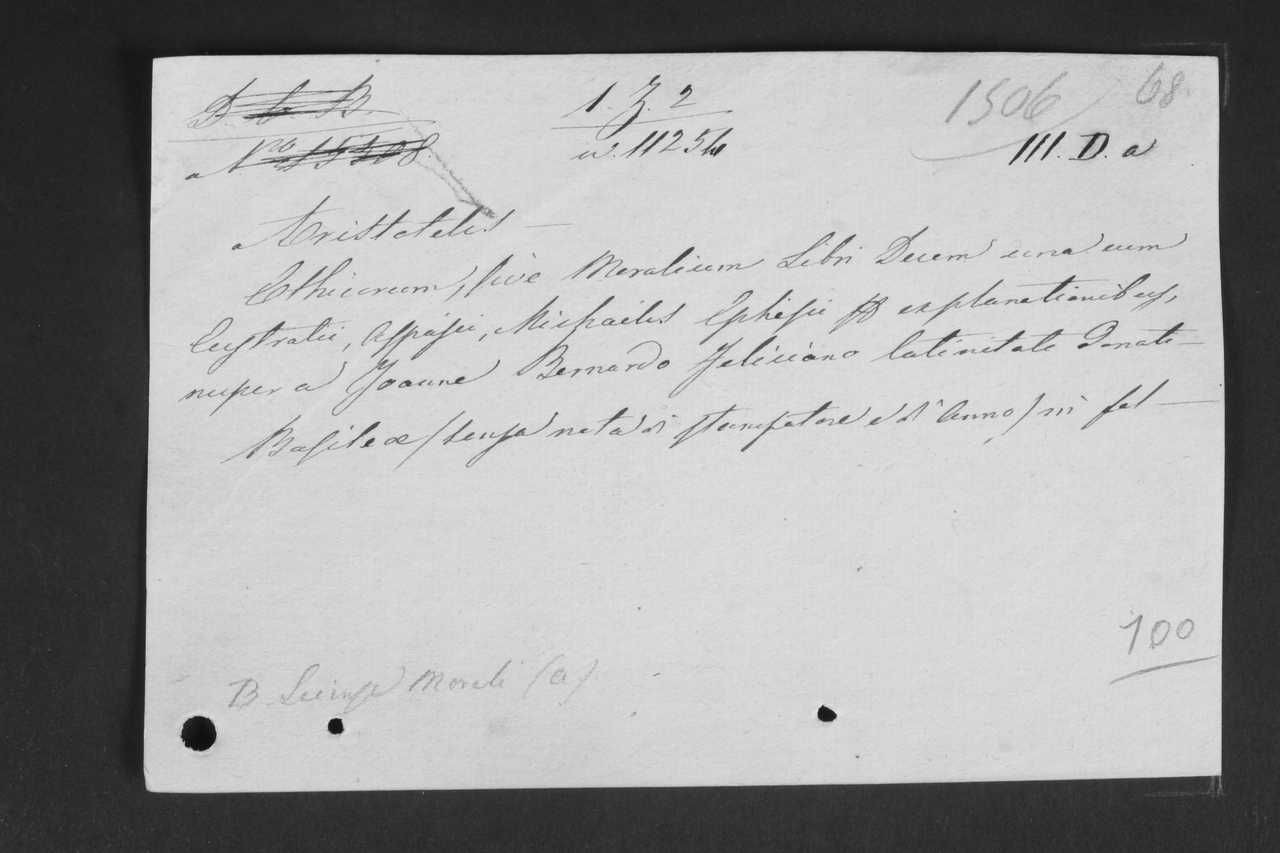 D b B
1. Z. 2
1506
68.
Nro 15508.
n. 11254
III. D. a
Aristotelis —
Ethicorum, sive Moralium Libri Decem una cum
Eustratii, Aspasii, Michaelis Ephesii explanationibus,
nuper a Joanne Bernardo Feliciano latinitate donati —
Basileæ (senza nota di stampatore e d'anno) in fol —
100
B Scienze Morali (a)